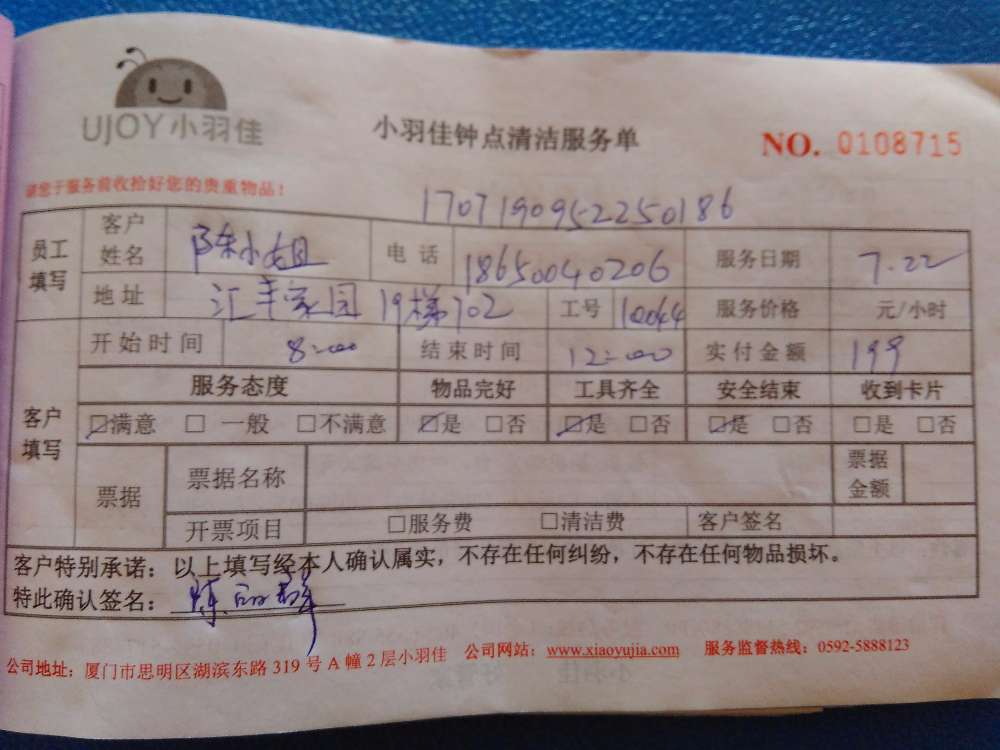 UJOY小羽佳
小羽佳钟点清洁服务单
NO. 0108715
请您于服务前收拾好您的贵重物品！
1707190952250186
员工填写 客户姓名 陈小姐 电话 18650040206 服务日期 7.22
地址 汇丰家园19梯702 工号 10044 服务价格 元/小时
客户填写 开始时间 8:00 结束时间 12:00 实付金额 199
服务态度 物品完好 工具齐全 安全结束 收到卡片
☑满意 □一般 □不满意 ☑是 □否 ☑是 □否 ☑是 □否 □是 □否
票据 票据名称 票据金额
开票项目 □服务费 □清洁费 客户签名
客户特别承诺：以上填写经本人确认属实，不存在任何纠纷，不存在任何物品损坏。
特此确认签名：陈丽群
公司地址：厦门市思明区湖滨东路319号A幢2层小羽佳 公司网站：www.xiaoyujia.com 服务监督热线：0592-5888123